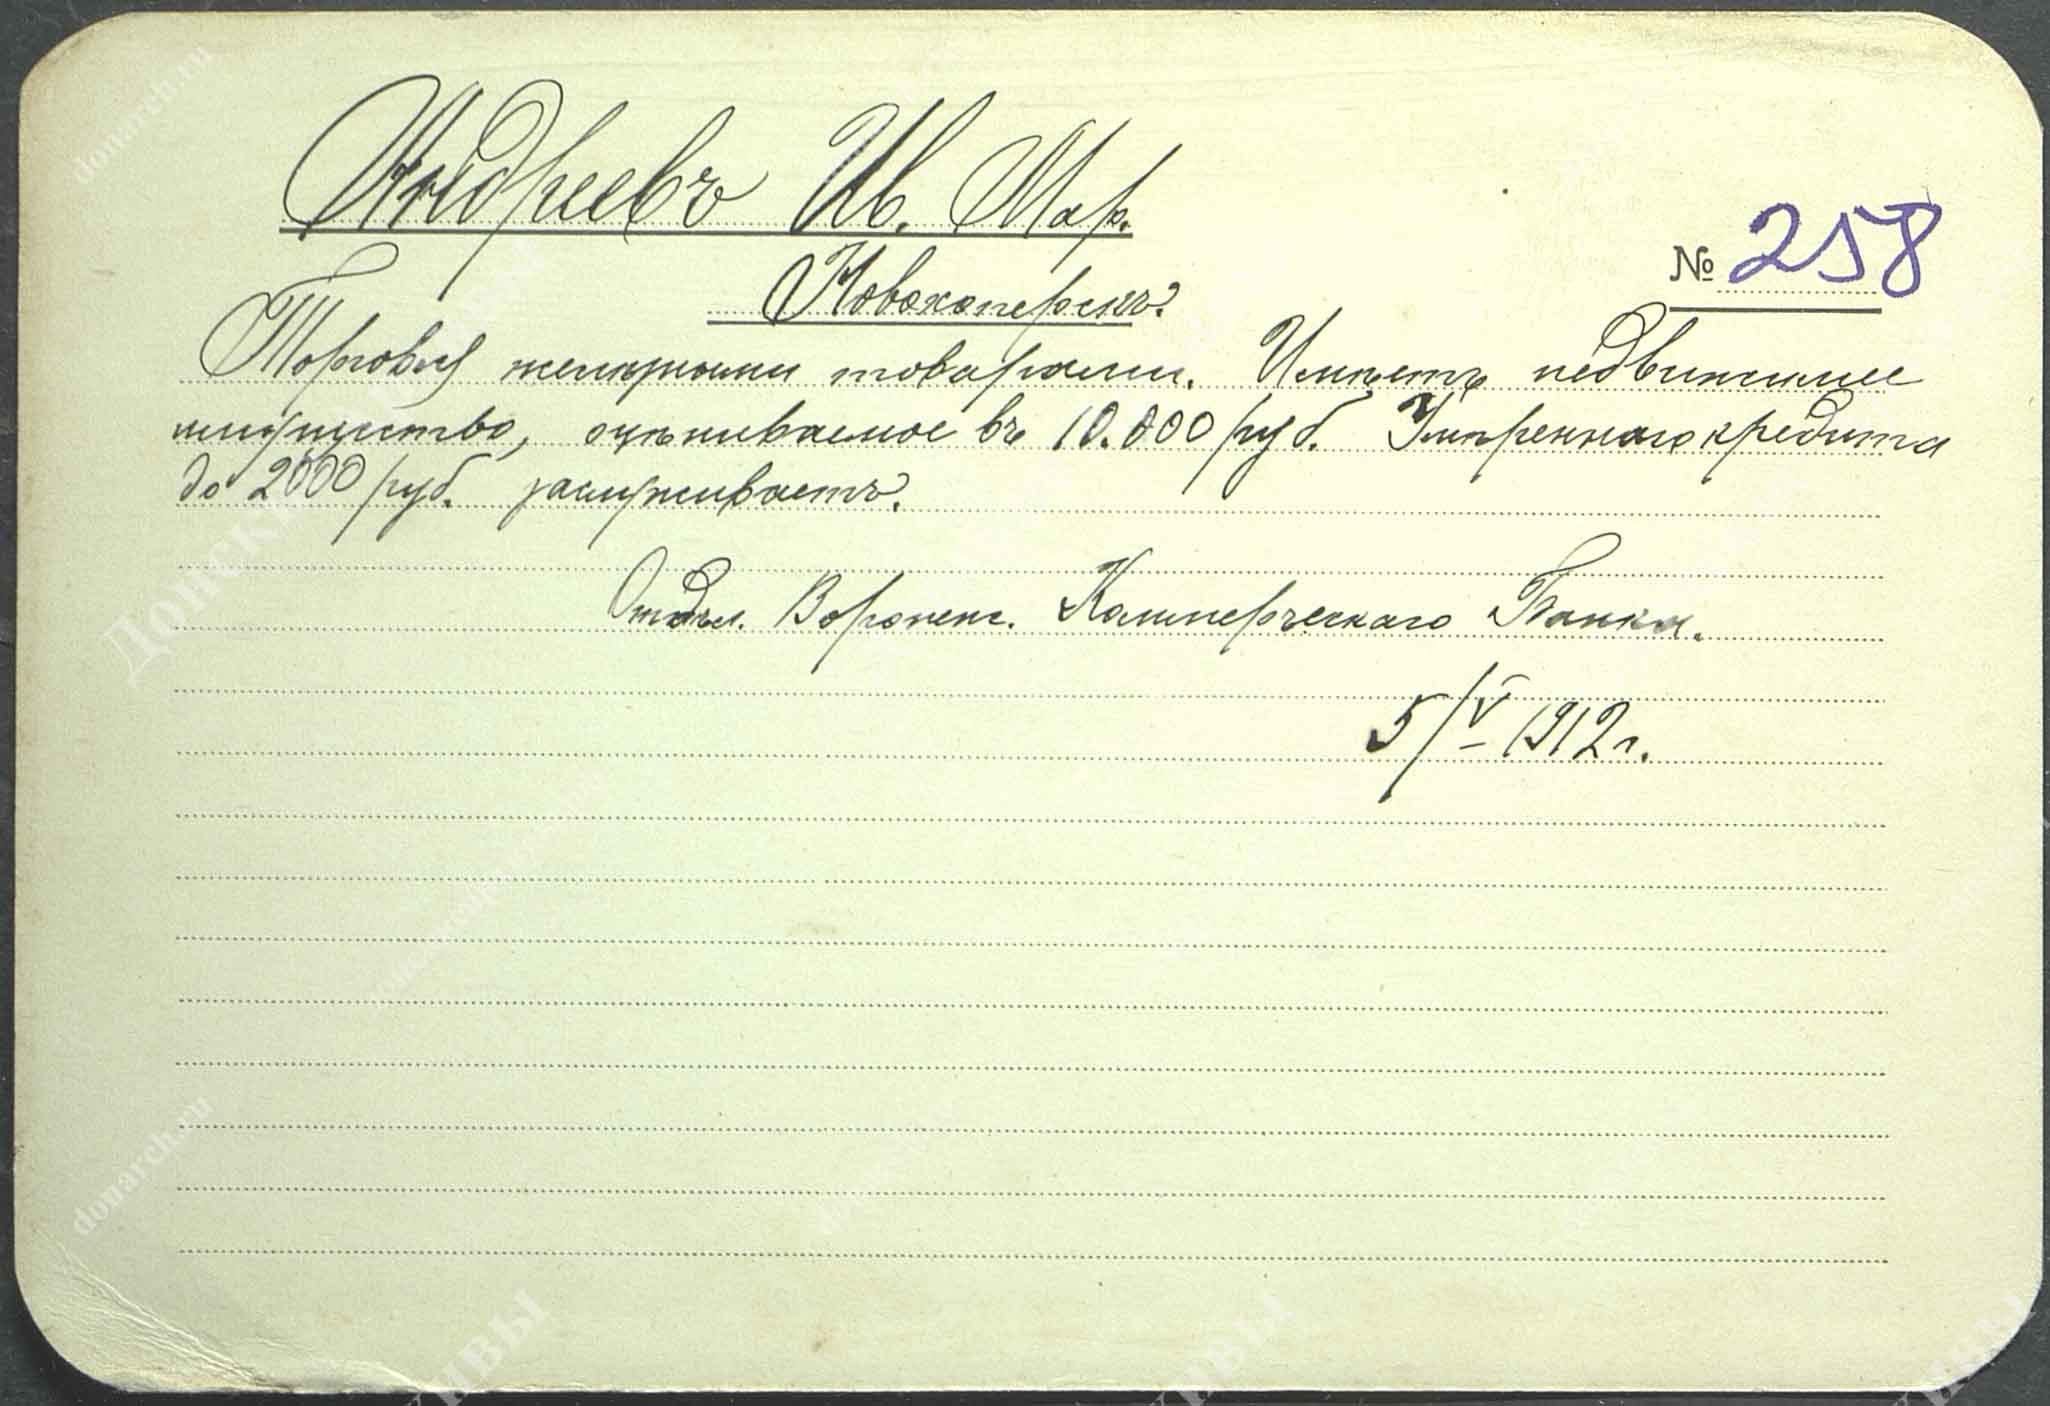 Андреевъ Ив. Мар.
№ 258
Новохоперскъ.
Торговля жел. товарами. Имѣетъ недвижимое
имущество, оцѣниваемое въ 10.000 руб. Умѣреннаго кредита
до 2000 руб. заслуживаетъ.
Отдѣл. Воронеж. Коммерческаго Банка.
5/V 1912 г.
donarch.ru
donarch.ru